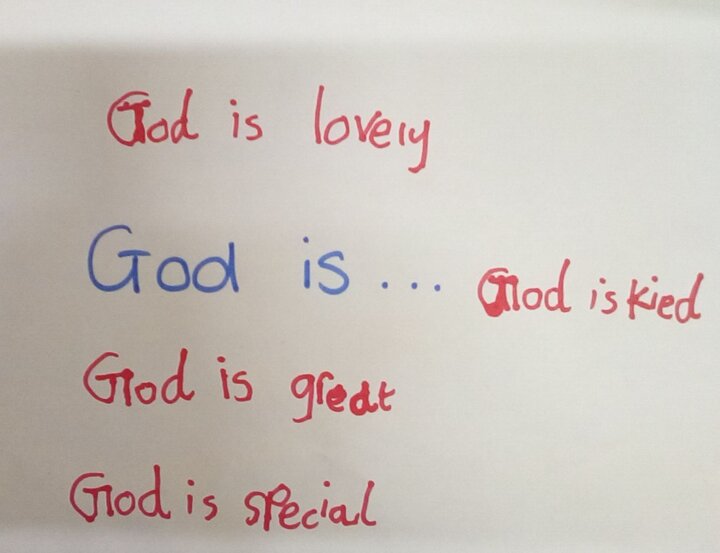 God is lovely
God is ...
God is kied
God is great
God is special